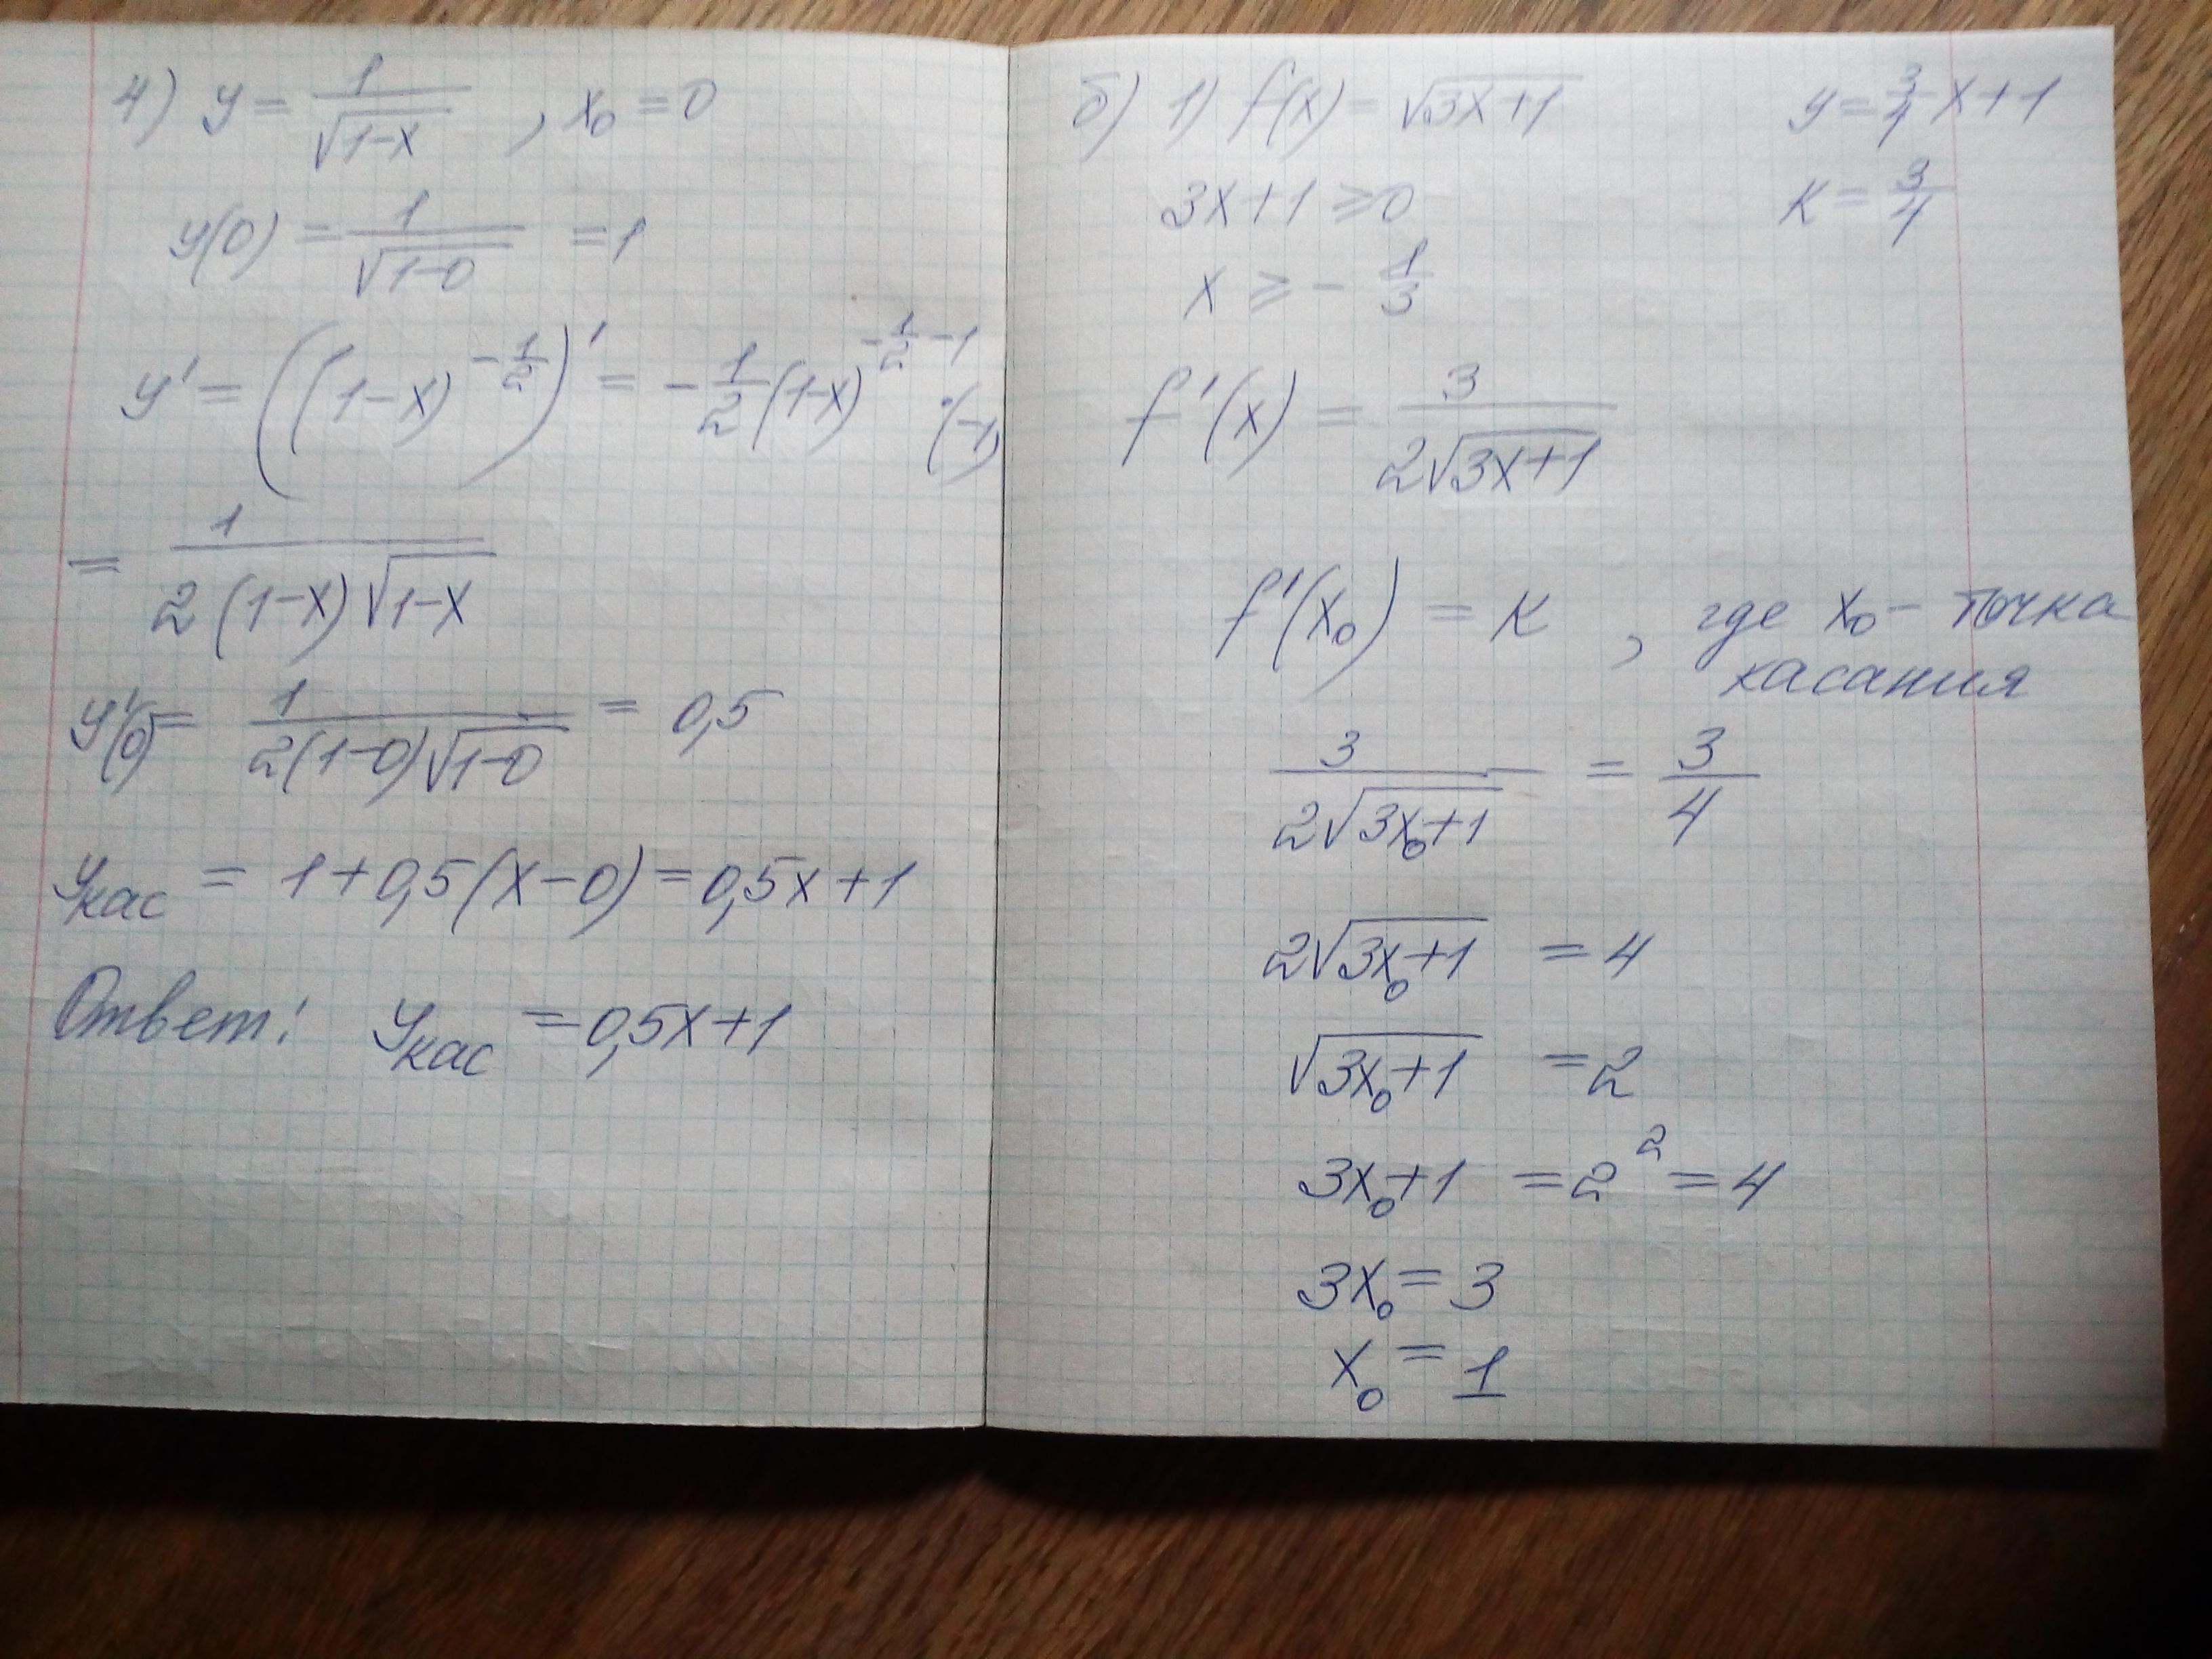 4) y = 1/√(1-x) , x₀ = 0
y(0) = 1/√(1-0) = 1
y' = ((1-x)^(-1/2))' = -1/2 (1-x)^(-1/2 - 1) · (-1)
= 1/(2(1-x)√(1-x))
y'(0) = 1/(2(1-0)√(1-0)) = 0,5
yкас = 1+0,5(x-0) = 0,5x+1
Ответ: yкас = 0,5x+1
б) 1) f(x) = √(3x+1) y = 3/4 x+1
3x+1 ⩾ 0 K = 3/4
x ⩾ - 1/3
f'(x) = 3/(2√(3x+1))
f'(x₀) = K , где x₀ - точка
касания
3/(2√(3x₀+1)) = 3/4
2√(3x₀+1) = 4
√(3x₀+1) = 2
3x₀+1 = 2² = 4
3x₀ = 3
x₀ = 1